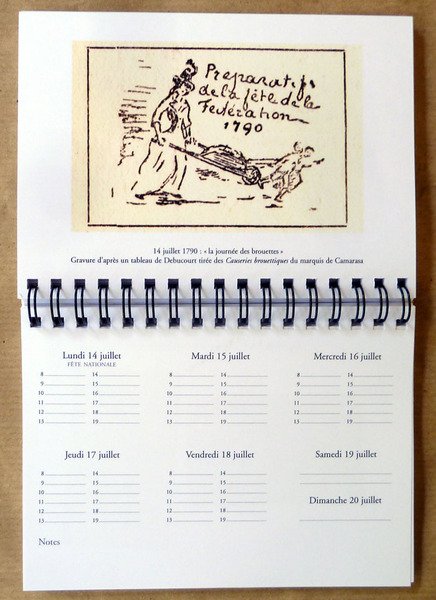 Preparatifs
de la fête de la
Federation
1790
14 juillet 1790 : « la journée des brouettes »
Gravure d'après un tableau de Debucourt tirée des Causeries brouettiques du marquis de Camarasa
Lundi 14 juillet
FÊTE NATIONALE
8 14
9 15
10 16
11 17
12 18
13 19
Mardi 15 juillet
8 14
9 15
10 16
11 17
12 18
13 19
Mercredi 16 juillet
8 14
9 15
10 16
11 17
12 18
13 19
Jeudi 17 juillet
8 14
9 15
10 16
11 17
12 18
13 19
Vendredi 18 juillet
8 14
9 15
10 16
11 17
12 18
13 19
Samedi 19 juillet
Dimanche 20 juillet
Notes